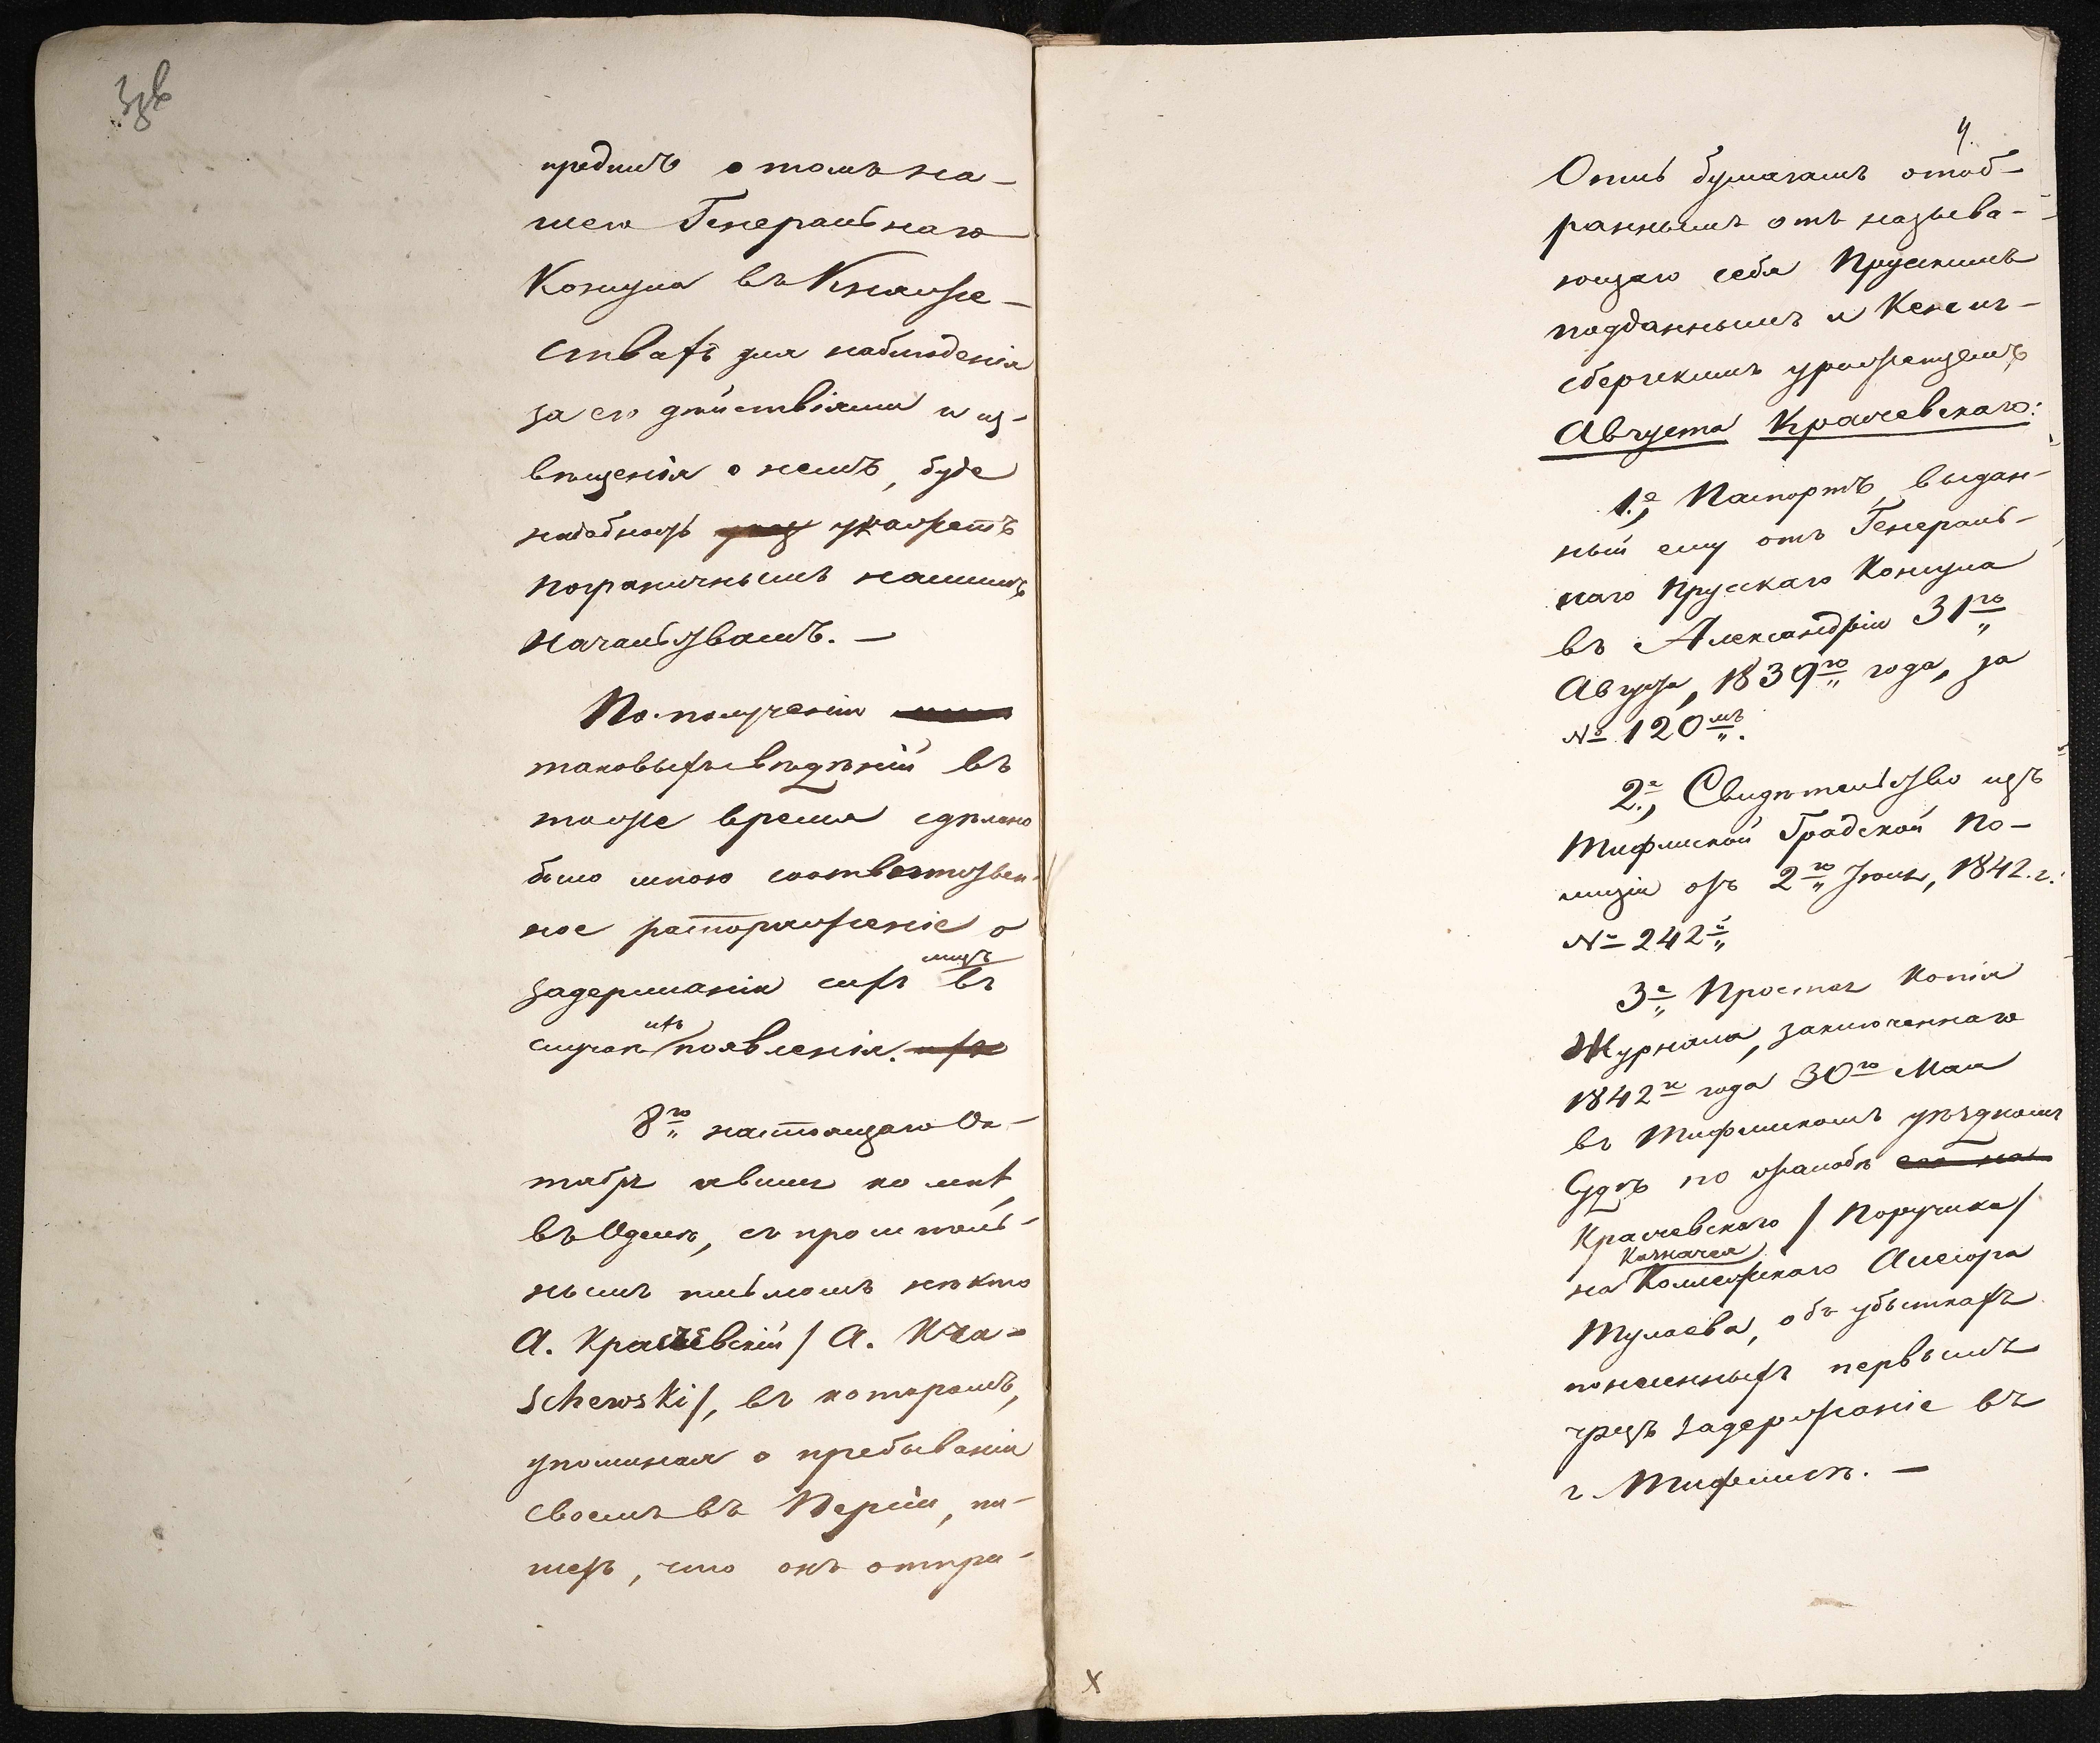 3об
предить о томъ на-
шего Генеральнаго
Консула въ Княже-
ствахъ для наблюденія
за его дѣйствіями и из-
вѣщенія о немъ, буде
надобность укажетъ
пограничнымъ нашимъ
Начальствамъ. —
По полученіи
таковыхъ свѣдѣній въ
тоже время сдѣлано
было мною соотвѣтствен-
ное распоряженіе о
задержаніи сихъ лицъ въ
случаѣ ихъ появленія. ихъ
8го настоящаго Ок-
тября явился ко мнѣ,
въ Одессѣ, съ проситель-
нымъ письмомъ нѣкто
А. Крашевскій / А. Kra-
schewski /, въ которомъ,
упоминая о пребываніи
своемъ въ Персіи, пи-
шетъ, что онъ отпра-
4.
Опись бумагамъ отоб-
раннымъ отъ называ-
ющаго себя Прусскимъ
подданнымъ и Кениг-
сбергскимъ уроженцемъ
Августа Крашевскаго:
1.е Паспортъ, выдан-
ный ему отъ Генераль-
наго Прусскаго Консула
въ Александріи 31го
Августа, 1839го года, за
№ 120мъ.
2.е, Свидѣтельство изъ
Тифлиской Градской По-
лиціи отъ 2го Іюня, 1842.г.
№ 242й
3е Простая копія
Журнала, заключеннаго
1842го года 30го Мая
въ Тифлискомъ уѣздномъ
Судѣ по жалобѣ его на
Крашевскаго / Поручика /
на Казначея Коллежскаго Асесора
Тулаева, объ убыткахъ
понесенныхъ первымъ
чрезъ задержаніе въ
г. Тифлисѣ. —
х